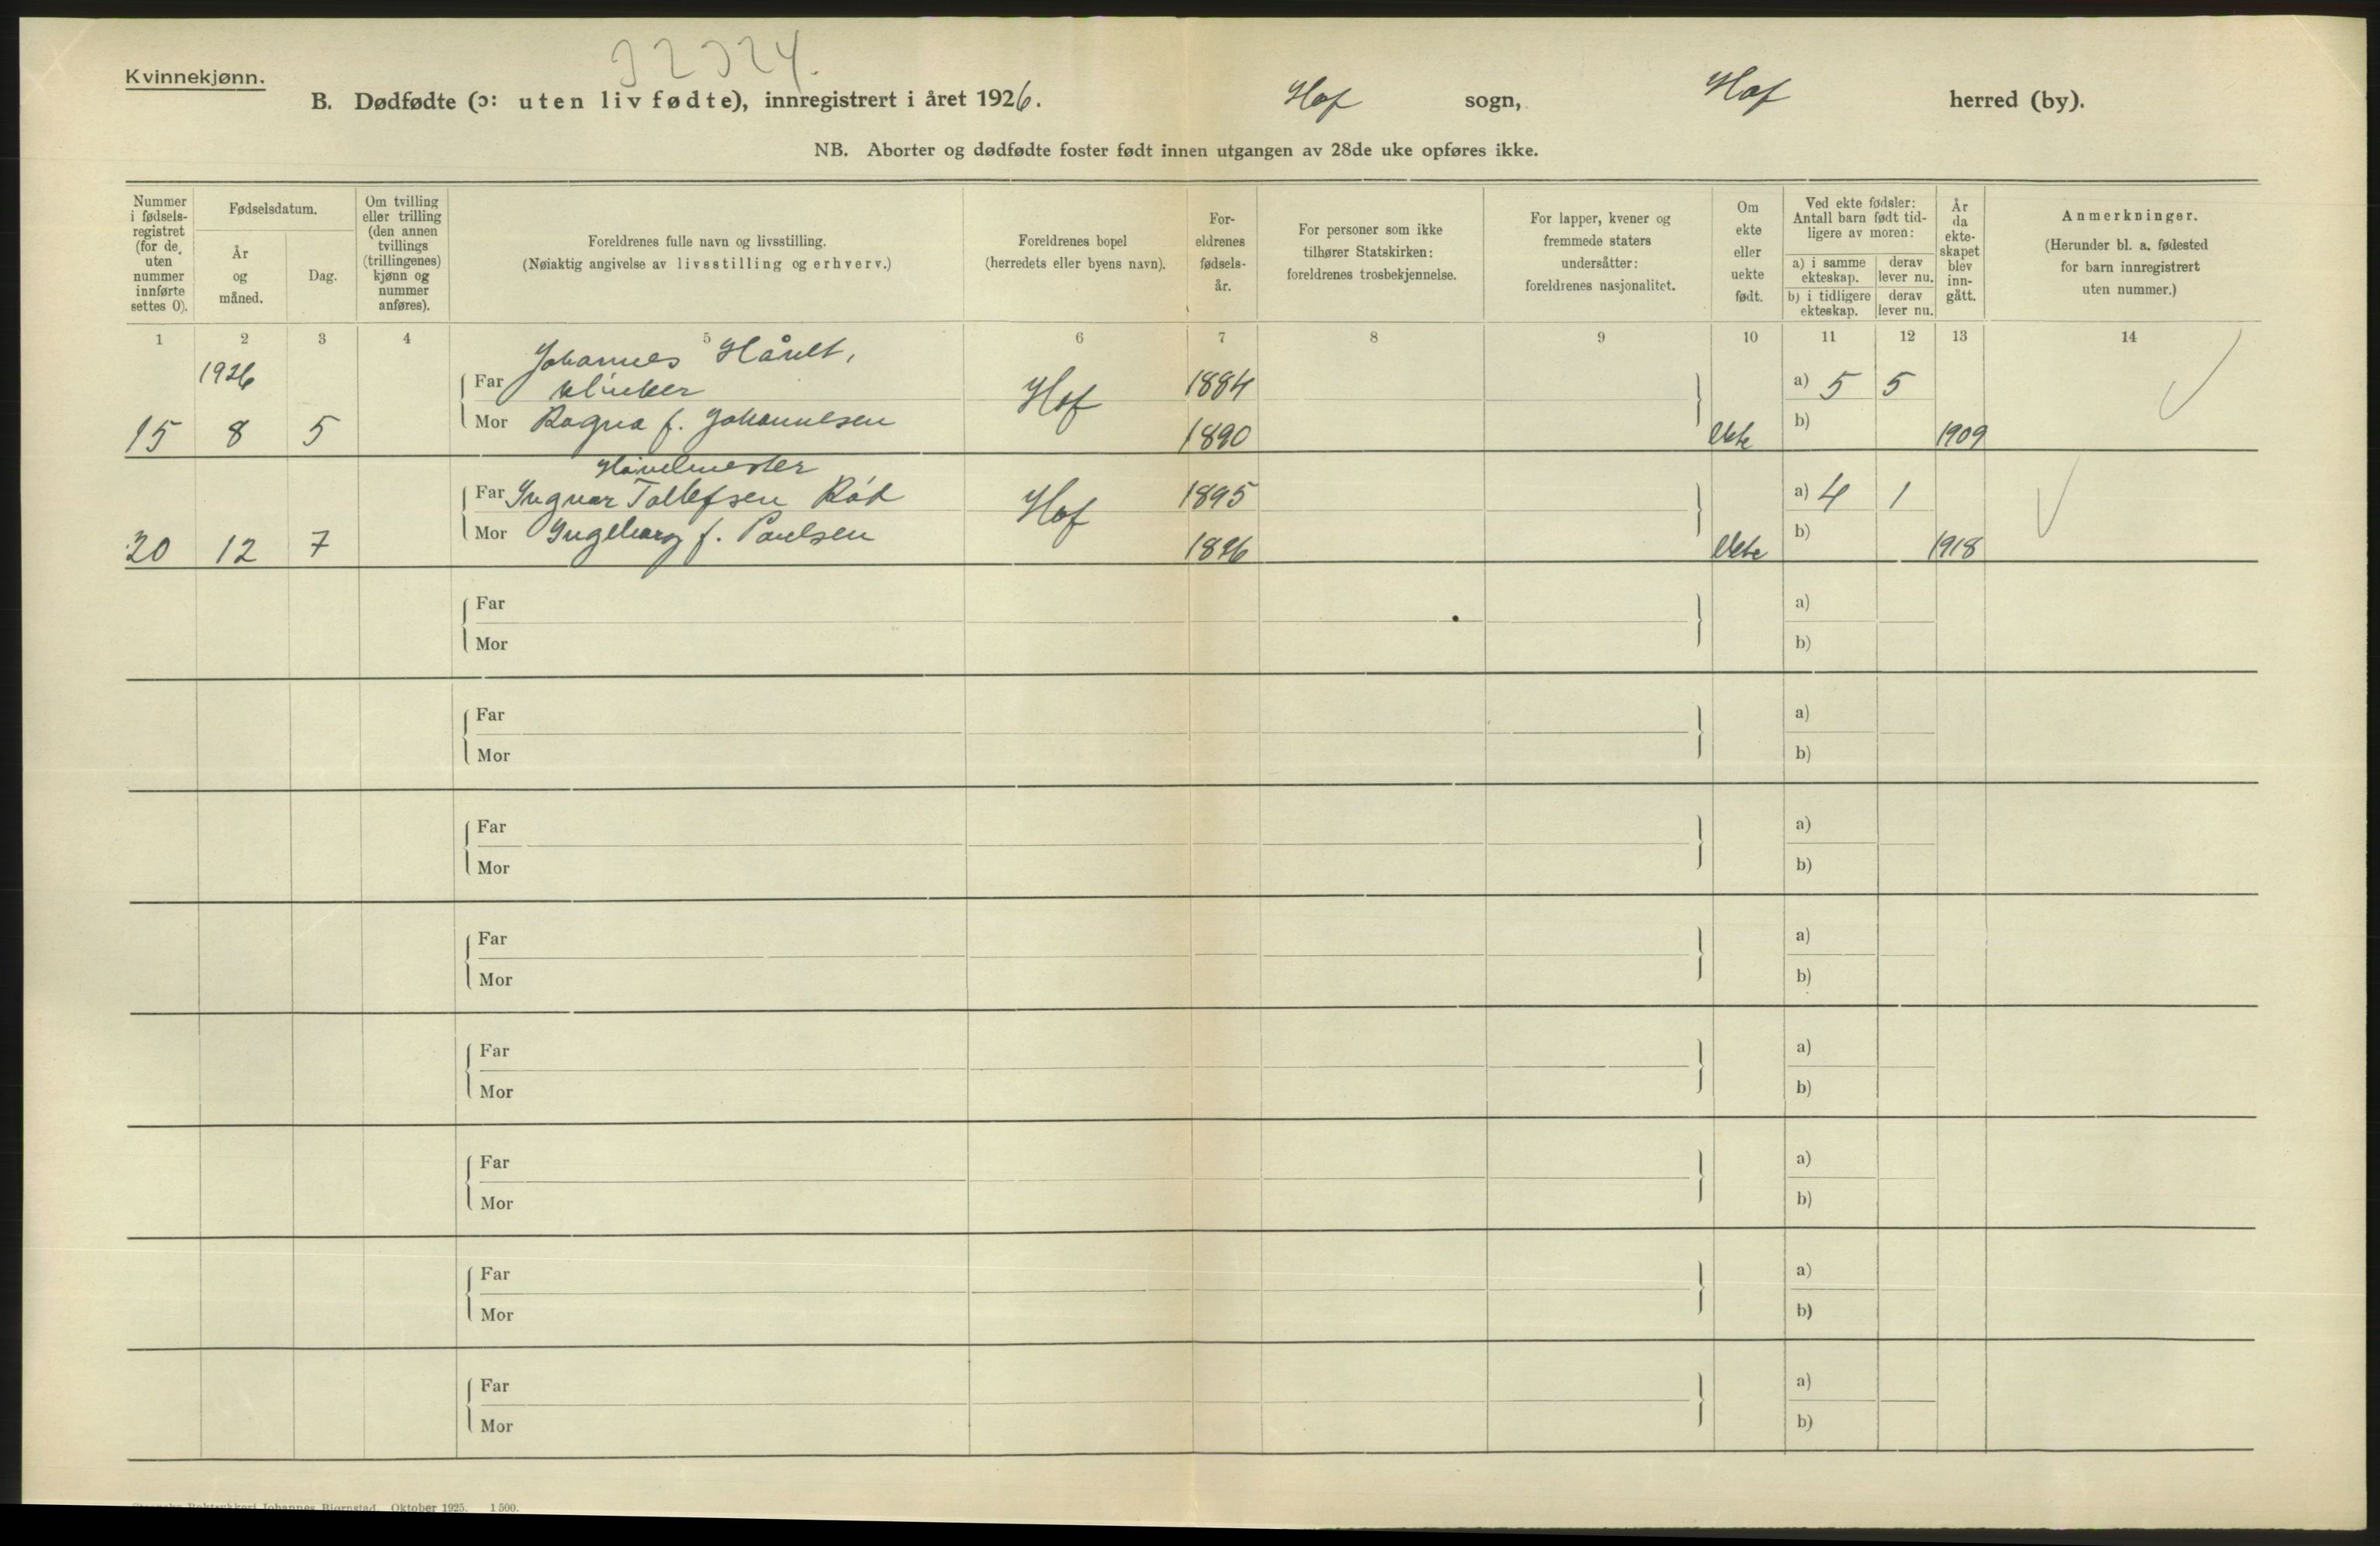 Kvinnekjønn.
B. Dødfødte (ɔ: uten liv fødte), innregistrert i året 1926. Hof sogn, Hof herred (by).
NB. Aborter og dødfødte foster født innen utgangen av 28de uke opføres ikke.
Nummer i fødsels-registret (for de uten nummer innførte settes 0).
Fødselsdatum.
År og måned.
Dag.
Om tvilling eller trilling (den annen tvillings (trillingenes) kjønn og nummer anføres).
Foreldrenes fulle navn og livsstilling.
(Nøiaktig angivelse av livsstilling og erhverv.)
Foreldrenes bopel
(herredets eller byens navn).
For-eldrenes fødsels-år.
For personer som ikke tilhører Statskirken: foreldrenes trosbekjennelse.
For lapper, kvener og fremmede staters undersåtter: foreldrenes nasjonalitet.
Om ekte eller uekte født.
Ved ekte fødsler: Antall barn født tid-ligere av moren:
a) i samme ekteskap. derav lever nu.
b) i tidligere ekteskap. derav lever nu.
År da ekte-skapet blev inn-gått.
Anmerkninger.
(Herunder bl. a. fødested for barn innregistrert uten nummer.)
1 2 3 4 5 6 7 8 9 10 11 12 13 14
1926 Johannes
Far 1884 a) 5 5
15 8 5 Mor Ragna f. Johannesen Hof 1890 ekte b) 1909
Far Ingvar Tollefsen Hof 1895 a) 4 1
20 12 7 Mor Ingeborg f. Paulsen 1896 ekte b) 1918
Far a)
Mor b)
Far a)
Mor b)
Far a)
Mor b)
Far a)
Mor b)
Far a)
Mor b)
Far a)
Mor b)
Far a)
Mor b)
Far a)
Mor b)
Johannes Bjørnstad. Oktober 1925. 1500.